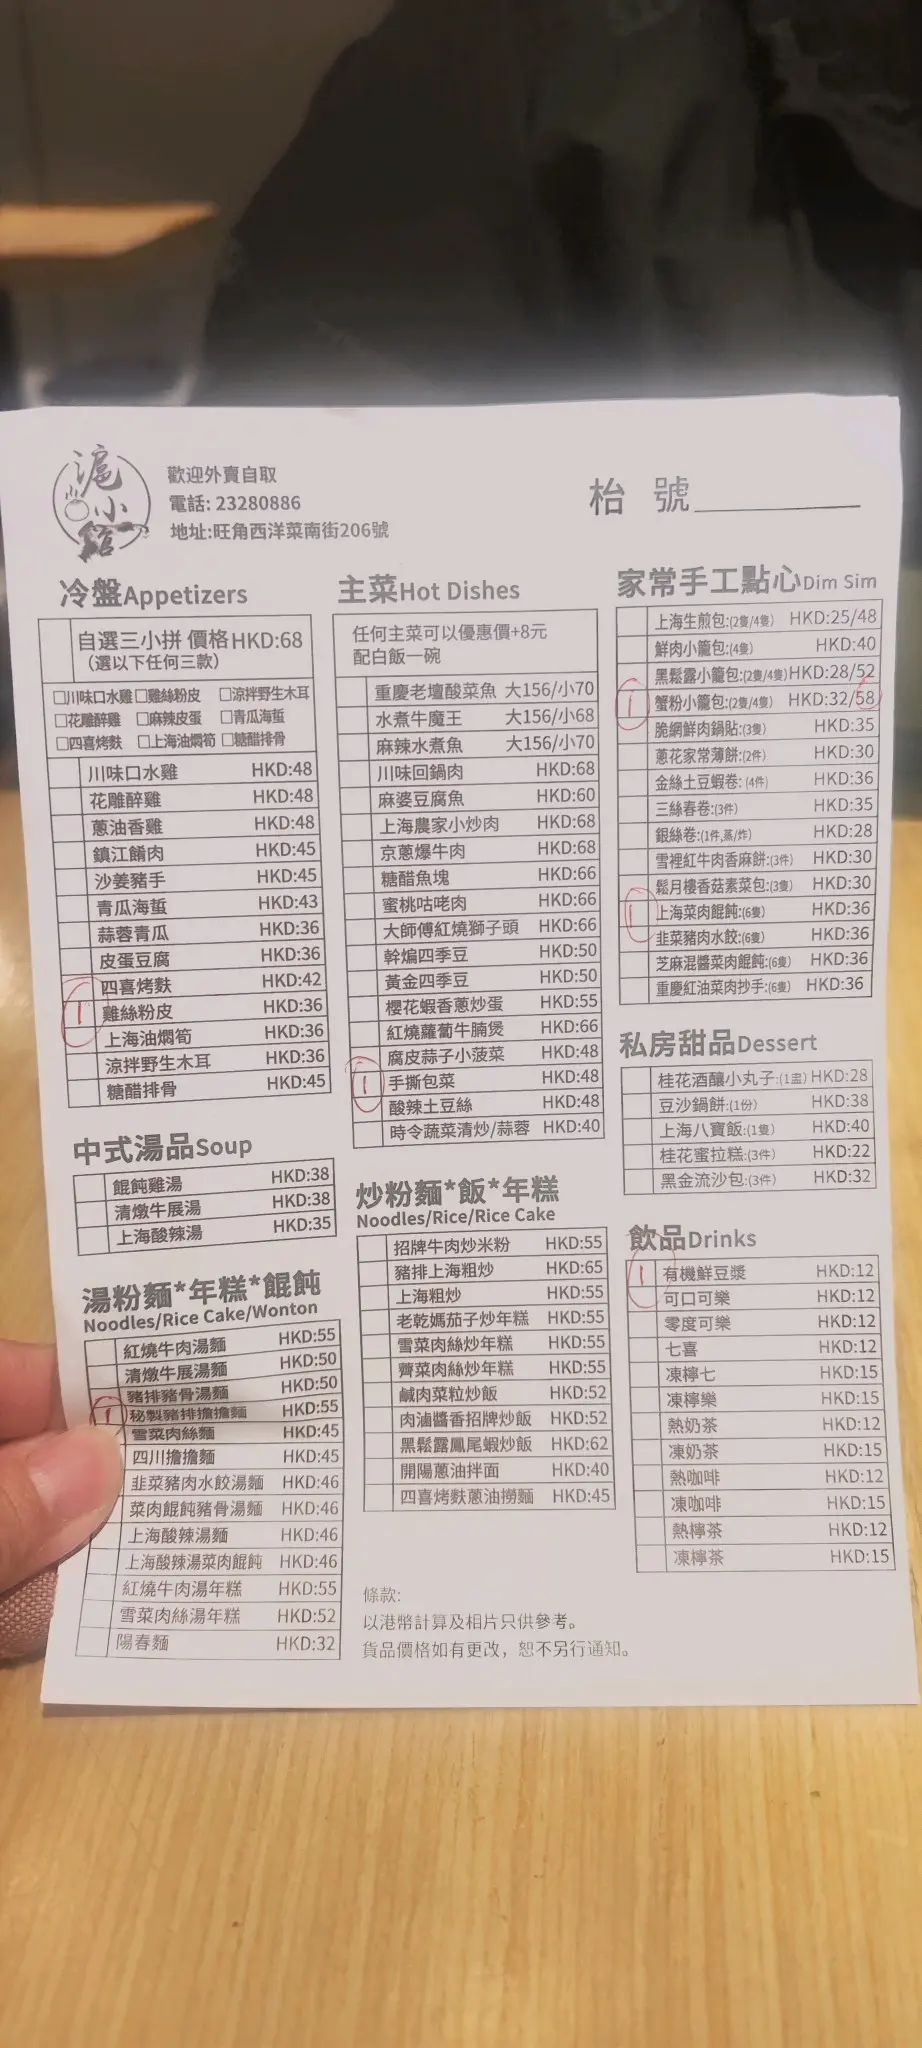 滬小館
歡迎外賣自取
電話: 23280886
地址:旺角西洋菜南街206號
枱 號
冷盤Appetizers
自選三小拼 價格HKD:68
(選以下任何三款)
□川味口水雞 □雞絲粉皮 □涼拌野生木耳
□花雕醉雞 □麻辣皮蛋 □青瓜海蜇
□四喜烤麩 □上海油燜筍 □糖醋排骨
川味口水雞 HKD:48
花雕醉雞 HKD:48
蔥油香雞 HKD:48
鎮江餚肉 HKD:45
沙姜豬手 HKD:45
青瓜海蜇 HKD:43
蒜蓉青瓜 HKD:36
皮蛋豆腐 HKD:36
四喜烤麩 HKD:42
1 雞絲粉皮 HKD:36
上海油燜筍 HKD:36
涼拌野生木耳 HKD:36
糖醋排骨 HKD:45
中式湯品Soup
餛飩雞湯 HKD:38
清燉牛展湯 HKD:38
上海酸辣湯 HKD:35
湯粉麵*年糕*餛飩
Noodles/Rice Cake/Wonton
紅燒牛肉湯麵 HKD:55
清燉牛展湯麵 HKD:50
豬排豬骨湯麵 HKD:50
1 秘製豬排擔擔麵 HKD:55
雪菜肉絲麵 HKD:45
四川擔擔麵 HKD:45
韭菜豬肉水餃湯麵 HKD:46
菜肉餛飩豬骨湯麵 HKD:46
上海酸辣湯麵 HKD:46
上海酸辣湯菜肉餛飩 HKD:46
紅燒牛肉湯年糕 HKD:55
雪菜肉絲湯年糕 HKD:52
陽春麵 HKD:32
主菜Hot Dishes
任何主菜可以優惠價+8元
配白飯一碗
重慶老壇酸菜魚 大156/小70
水煮牛魔王 大156/小68
麻辣水煮魚 大156/小70
川味回鍋肉 HKD:68
麻婆豆腐魚 HKD:60
上海農家小炒肉 HKD:68
京蔥爆牛肉 HKD:68
糖醋魚塊 HKD:66
蜜桃咕咾肉 HKD:66
大師傅紅燒獅子頭 HKD:66
幹煸四季豆 HKD:50
黃金四季豆 HKD:50
櫻花蝦香蔥炒蛋 HKD:55
紅燒蘿蔔牛腩煲 HKD:66
腐皮蒜子小菠菜 HKD:48
1 手撕包菜 HKD:48
酸辣土豆絲 HKD:48
時令蔬菜清炒/蒜蓉 HKD:40
炒粉麵*飯*年糕
Noodles/Rice/Rice Cake
招牌牛肉炒米粉 HKD:55
豬排上海粗炒 HKD:65
上海粗炒 HKD:55
老乾媽茄子炒年糕 HKD:55
雪菜肉絲炒年糕 HKD:55
薺菜肉絲炒年糕 HKD:55
鹹肉菜粒炒飯 HKD:52
肉滷醬香招牌炒飯 HKD:52
黑鬆露鳳尾蝦炒飯 HKD:62
開陽蔥油拌面 HKD:40
四喜烤麩蔥油撈麵 HKD:45
條款:
以港幣計算及相片只供參考。
貨品價格如有更改，恕不另行通知。
家常手工點心Dim Sim
上海生煎包:(2隻/4隻) HKD:25/48
鮮肉小籠包:(4隻) HKD:40
黑鬆露小籠包:(2隻/4隻)HKD:28/52
1 蟹粉小籠包:(2隻/4隻) HKD:32/58
脆網鮮肉鍋貼:(3隻) HKD:35
蔥花家常薄餅:(2件) HKD:30
金絲土豆蝦卷: (4件) HKD:36
三絲春卷:(3件) HKD:35
銀絲卷:(1件,蒸/炸) HKD:28
雪裡紅牛肉香麻餅:(3件) HKD:30
鬆月樓香菇素菜包:(3隻) HKD:30
1 上海菜肉餛飩:(6隻) HKD:36
韭菜豬肉水餃:(6隻) HKD:36
芝麻混醬菜肉餛飩:(6隻) HKD:36
重慶紅油菜肉抄手:(6隻) HKD:36
私房甜品Dessert
桂花酒釀小丸子:(1盅)HKD:28
豆沙鍋餅:(1份) HKD:38
上海八寶飯:(1隻) HKD:40
桂花蜜拉糕:(3件) HKD:22
黑金流沙包:(3件) HKD:32
飲品Drinks
1 有機鮮豆漿 HKD:12
可口可樂 HKD:12
零度可樂 HKD:12
七喜 HKD:12
凍檸七 HKD:15
凍檸樂 HKD:15
熱奶茶 HKD:12
凍奶茶 HKD:15
熱咖啡 HKD:12
凍咖啡 HKD:15
熱檸茶 HKD:12
凍檸茶 HKD:15